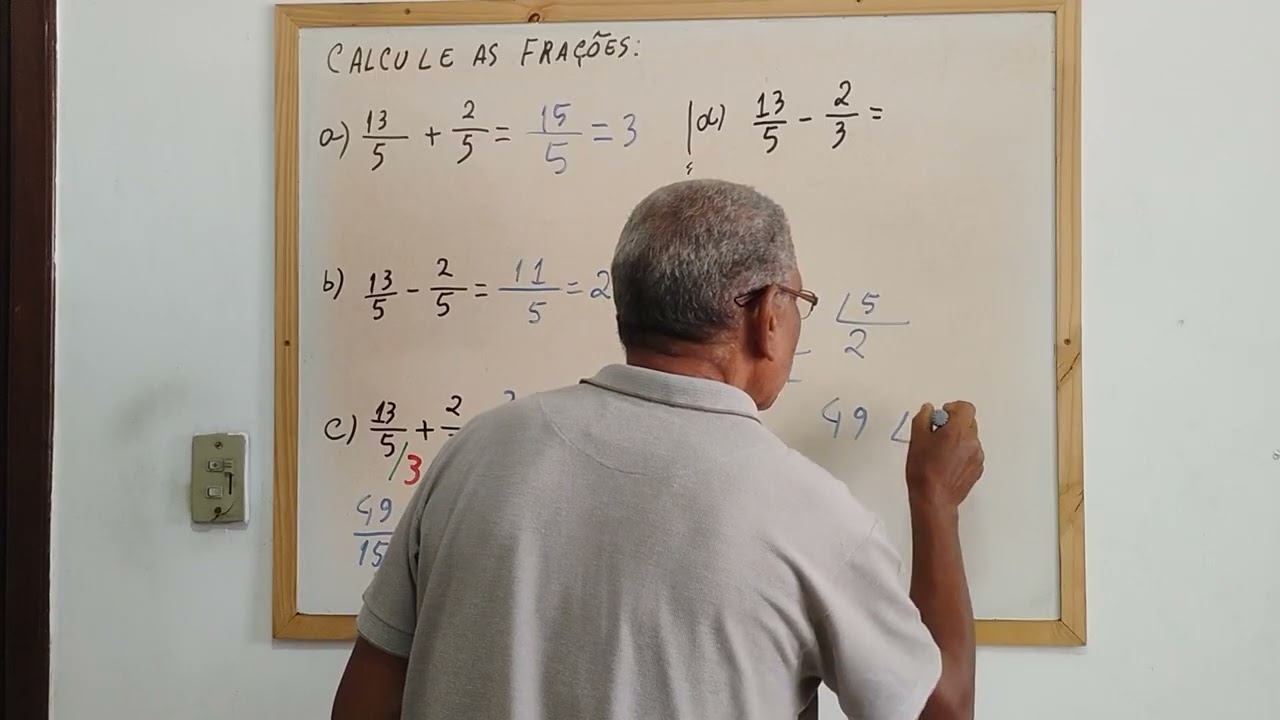 CALCULE AS FRAÇÕES:
a) 13/5 + 2/5 = 15/5 = 3
d) 13/5 - 2/3 =
b) 13/5 - 2/5 = 11/5 = 2
c) 13/5 + 2
/3
49
15
5
2
49